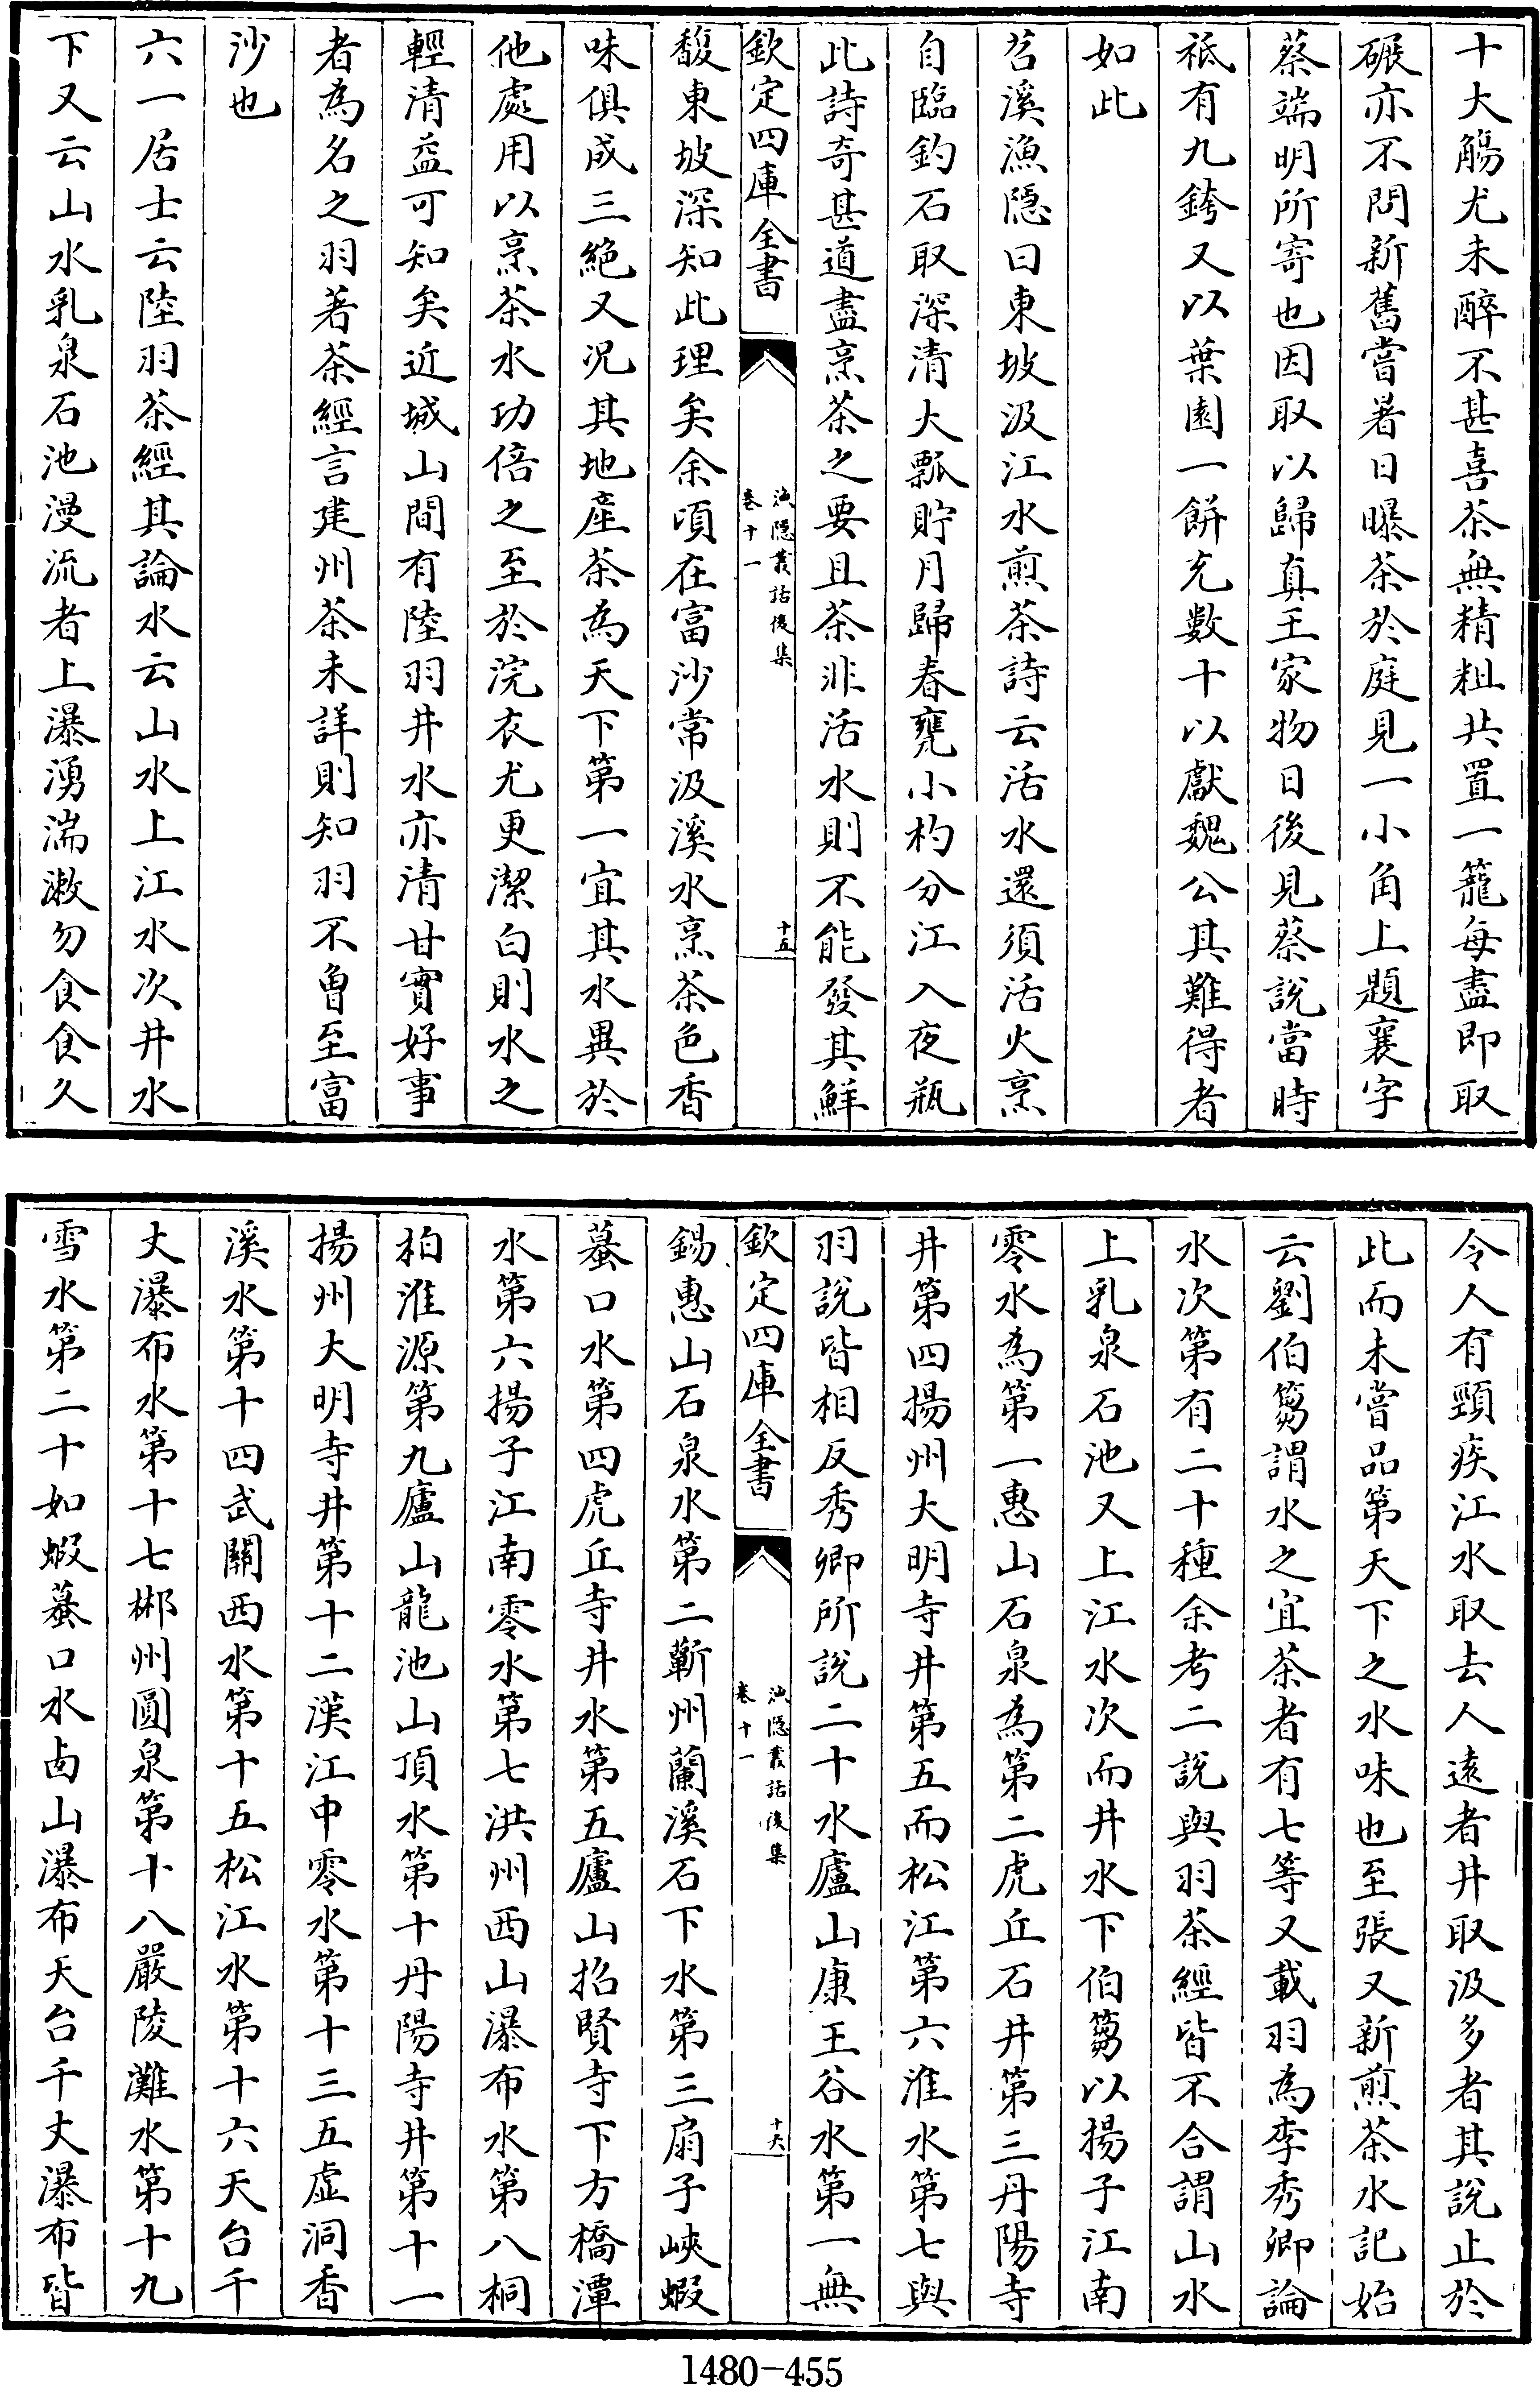 十大觴尤未醉不甚喜茶無精粗共置一籠每盡即取
碾亦不問新舊嘗暑日曝茶於庭見一小角上題襄字
蔡端明所寄也因取以歸真王家物日後見蔡說當時
祗有九銙又以葉園一餅充數十以獻魏公其難得者
如此
苕溪漁隱曰東坡汲江水煎茶詩云活水還須活火烹
自臨釣石取深清大瓢貯月歸春甕小杓分江入夜瓶
此詩奇甚道盡烹茶之要且茶非活水則不能發其鮮
欽定四庫全書
漁隱叢話後集
卷十一
十五
馥東坡深知此理矣余頃在富沙常汲溪水烹茶色香
味俱成三絕又況其地產茶為天下第一宜其水異於
他處用以烹茶水功倍之至於浣衣尤更潔白則水之
輕清益可知矣近城山間有陸羽井水亦清甘實好事
者為名之羽著茶經言建州茶未詳則知羽不曾至富
沙也
六一居士云陸羽茶經其論水云山水上江水次井水
下又云山水乳泉石池漫流者上瀑湧湍漱勿食食久
令人有頸疾江水取去人遠者井取汲多者其說止於
此而未嘗品第天下之水味也至張又新煎茶水記始
云劉伯芻謂水之宜茶者有七等又載羽為李秀卿論
水次第有二十種余考二說與羽茶經皆不合謂山水
上乳泉石池又上江水次而井水下伯芻以揚子江南
零水為第一惠山石泉為第二虎丘石井第三丹陽寺
井第四揚州大明寺井第五而松江第六淮水第七與
羽說皆相反秀卿所說二十水廬山康王谷水第一無
欽定四庫全書
漁隱叢話後集
卷十一
十六
錫惠山石泉水第二蘄州蘭溪石下水第三扇子峽蝦
蟇口水第四虎丘寺井水第五廬山招賢寺下方橋潭
水第六揚子江南零水第七洪州西山瀑布水第八桐
柏淮源第九廬山龍池山頂水第十丹陽寺井第十一
揚州大明寺井第十二漢江中零水第十三五虛洞香
溪水第十四武關西水第十五松江水第十六天台千
丈瀑布水第十七郴州圓泉第十八嚴陵灘水第十九
雪水第二十如蝦蟇口水卣山瀑布天台千丈瀑布皆
1480-455